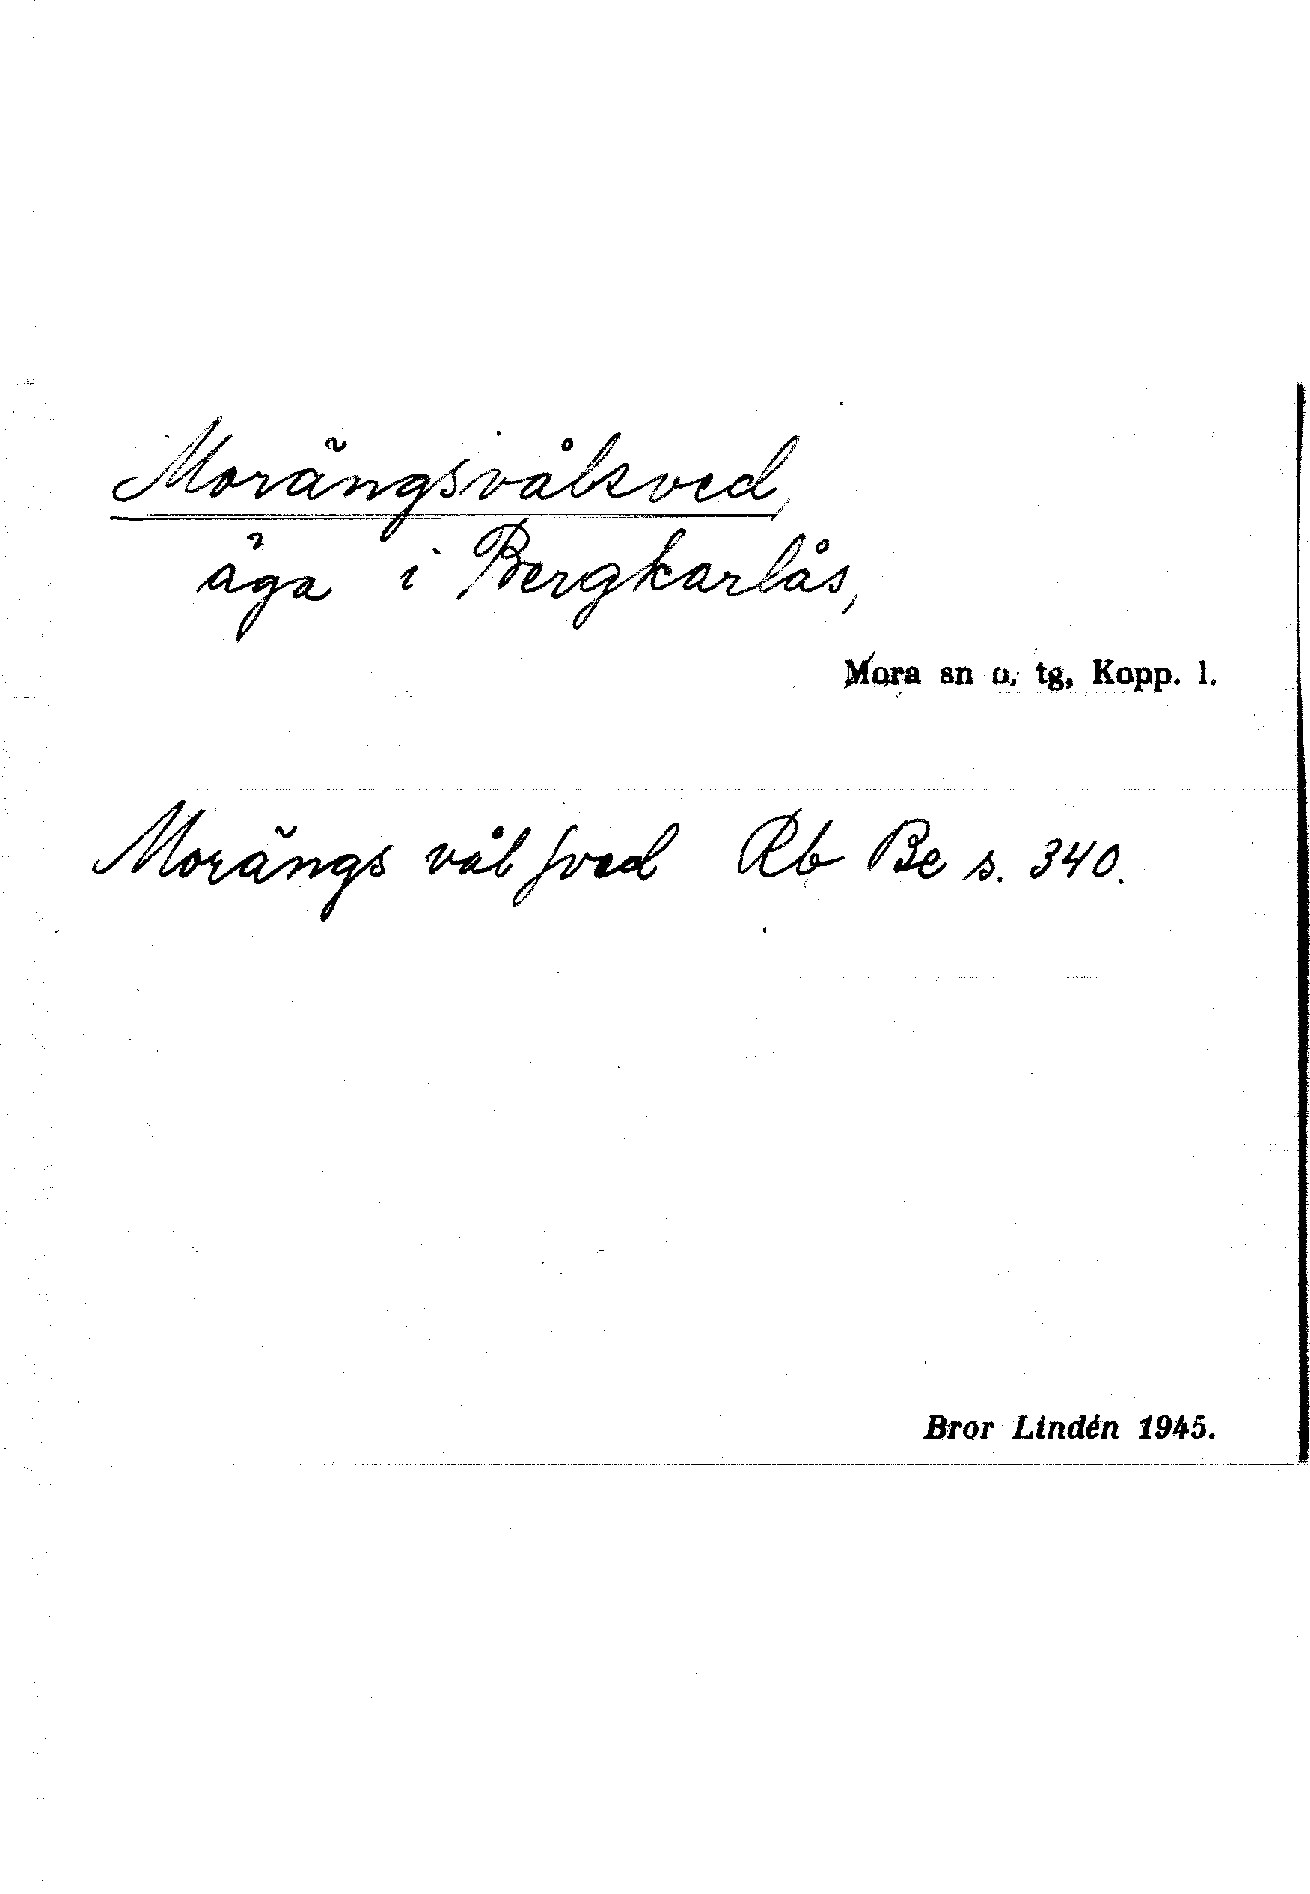 Morängsvålsved,
äga i Bergkarlås,
Mora sn o. tg, Kopp. l.
Morängs vål sved Rb Be s. 340.
Bror Lindén 1945.